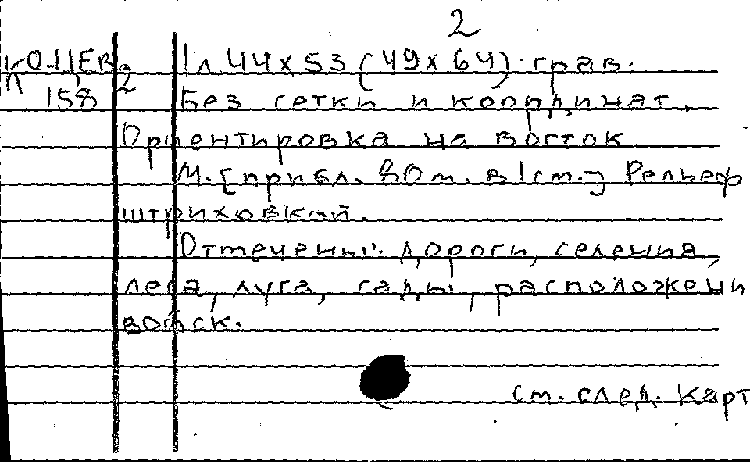 2
К 0-Ц,ЕВ 2 1 л 44х53 (49х64). грав.
п 158 Без сетки и координат.
Ориентировка на восток
М. [прибл. 80 м. в 1 см.] Рельеф
штриховкой.
Отмечены: дороги, селения,
леса, луга, сады, расположени
войск.
см. след. карт